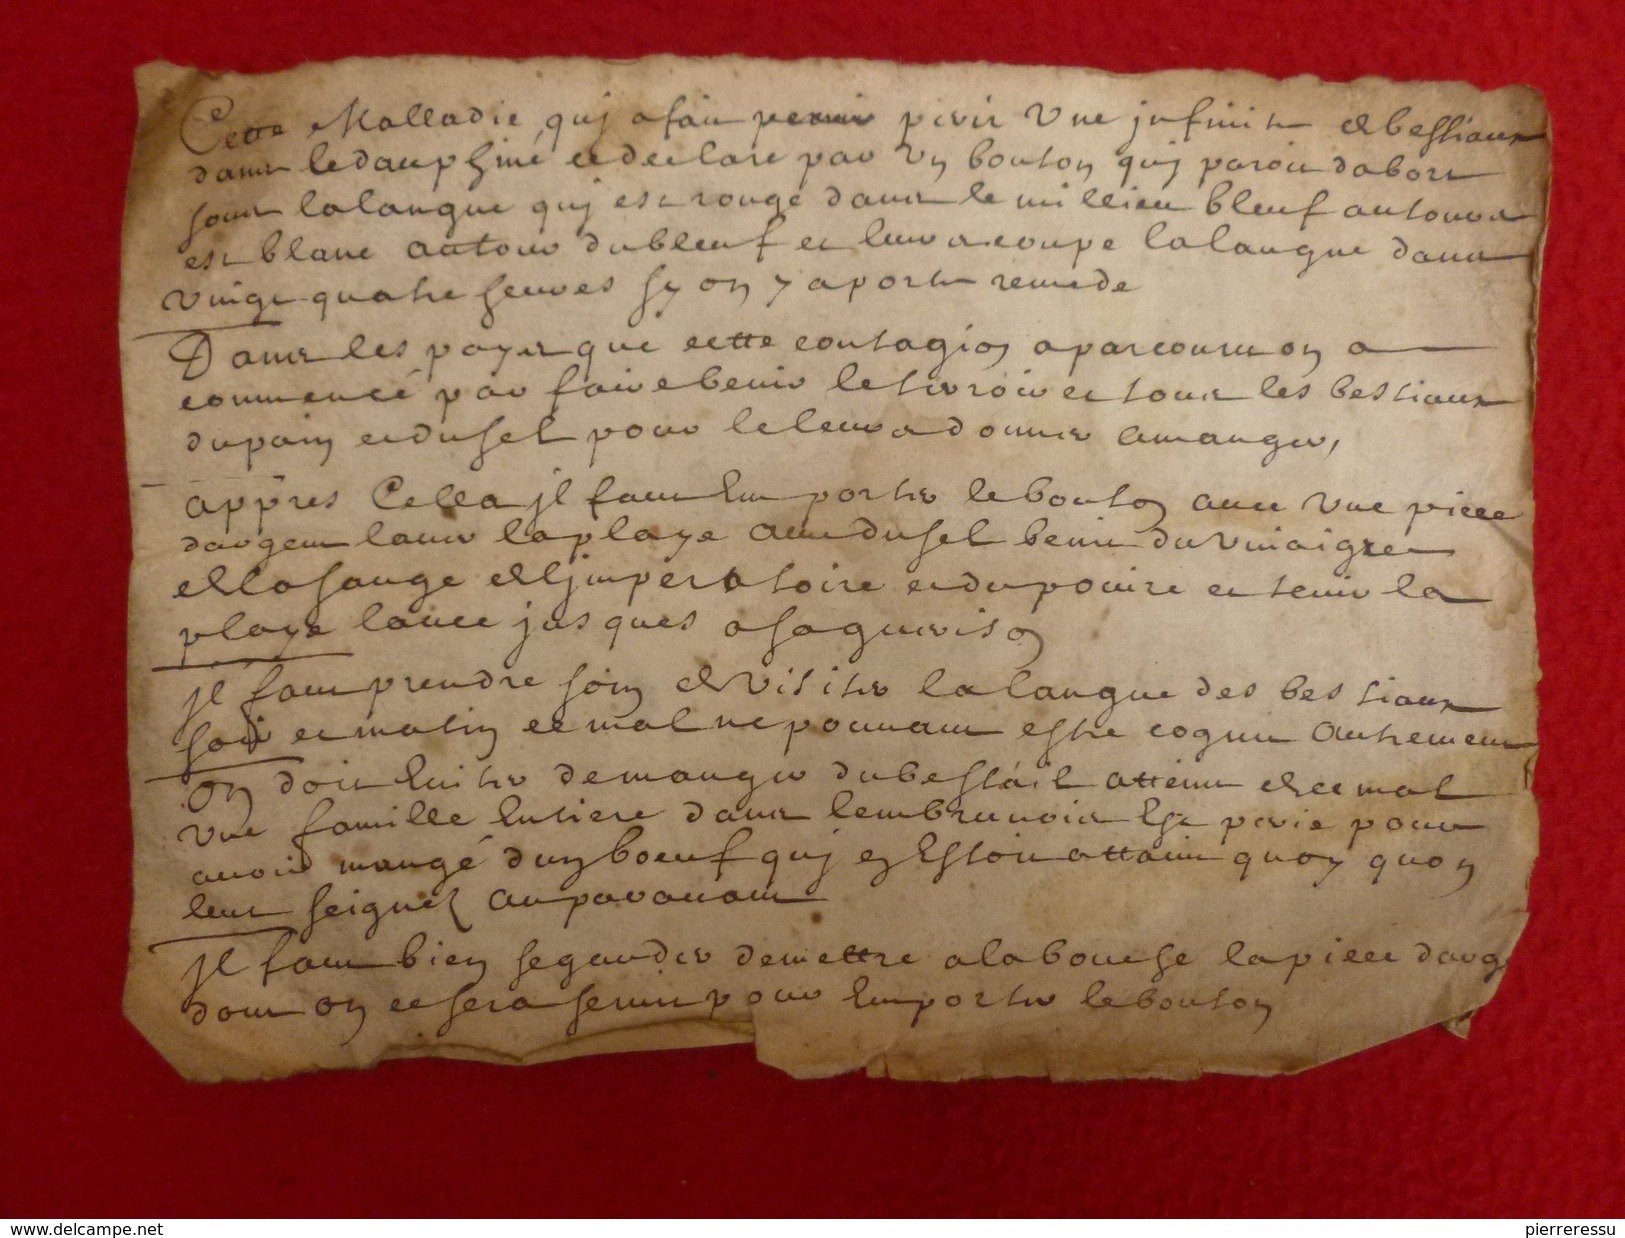 Cette Malladie quj a fait perir perir Vne jnfinite de bestiaux
dans le dauphiné ce declare par Vn bouton quj paroit dabort
sous la langue quj est rouge dans le millieu bleuf autour
est blanc autour du bleuf et leur coupe la langue dans
vingt quatre heures sy on y aporte remede
Dans les payis que cette contagion a parcouru on a
commencé par faire benir le terroir et tous les bestiaux
du pain et du sel pour le leur donner a manger,
appres Cella jl faut Emporter le bouton avec Vne piece
dargent laver la playe avec du sel benit du Vinaigre
de la sauge de ljmperatoire et du poivre et tenir la
playe lavee jusques a sa guerison
jl faut prendre soin de Visiter la langue des bestiaux
soir et matin ce mal ne pouvant estre cognu autrement
on doit Eviter de manger du bestail atteint de ce mal
Vne famille Entiere dans lembrunois Est perie pour
avoir mangé dun boeuf quj en Estoit attaint quoy quon
leut seigné auparavant
jl faut bien se garder de mettre a la bouche la piece darge
dont on ce sera servit pour Emporter le bouton
www.delcampe.net
pierreressu